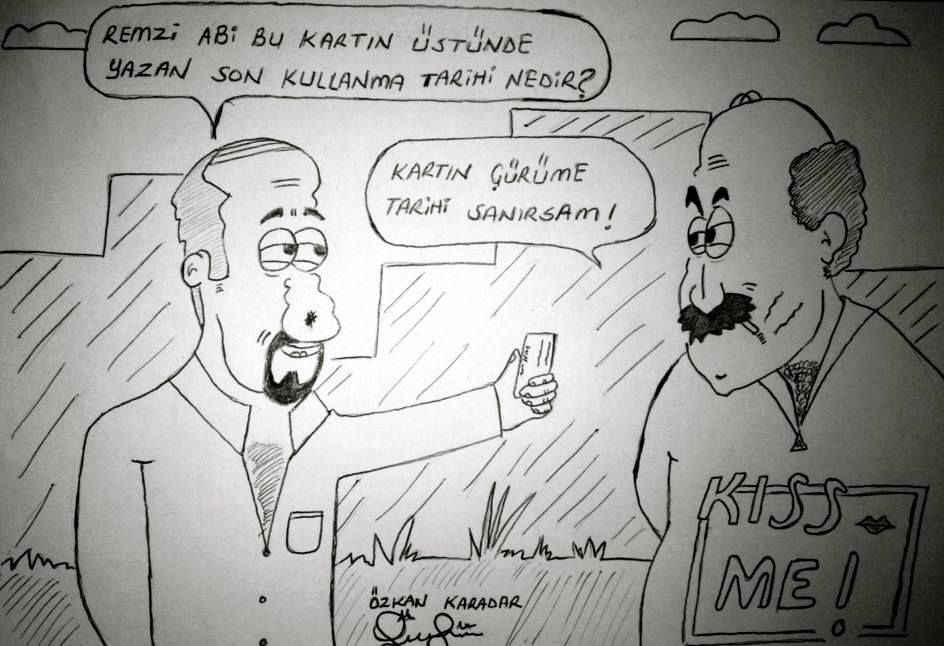 REMZİ ABİ BU KARTIN ÜSTÜNDE
YAZAN SON KULLANMA TARİHİ NEDİR?
KARTIN ÇÜRÜME
TARİHİ SANIRSAM!
KISS
ME!
ÖZKAN KARADAR